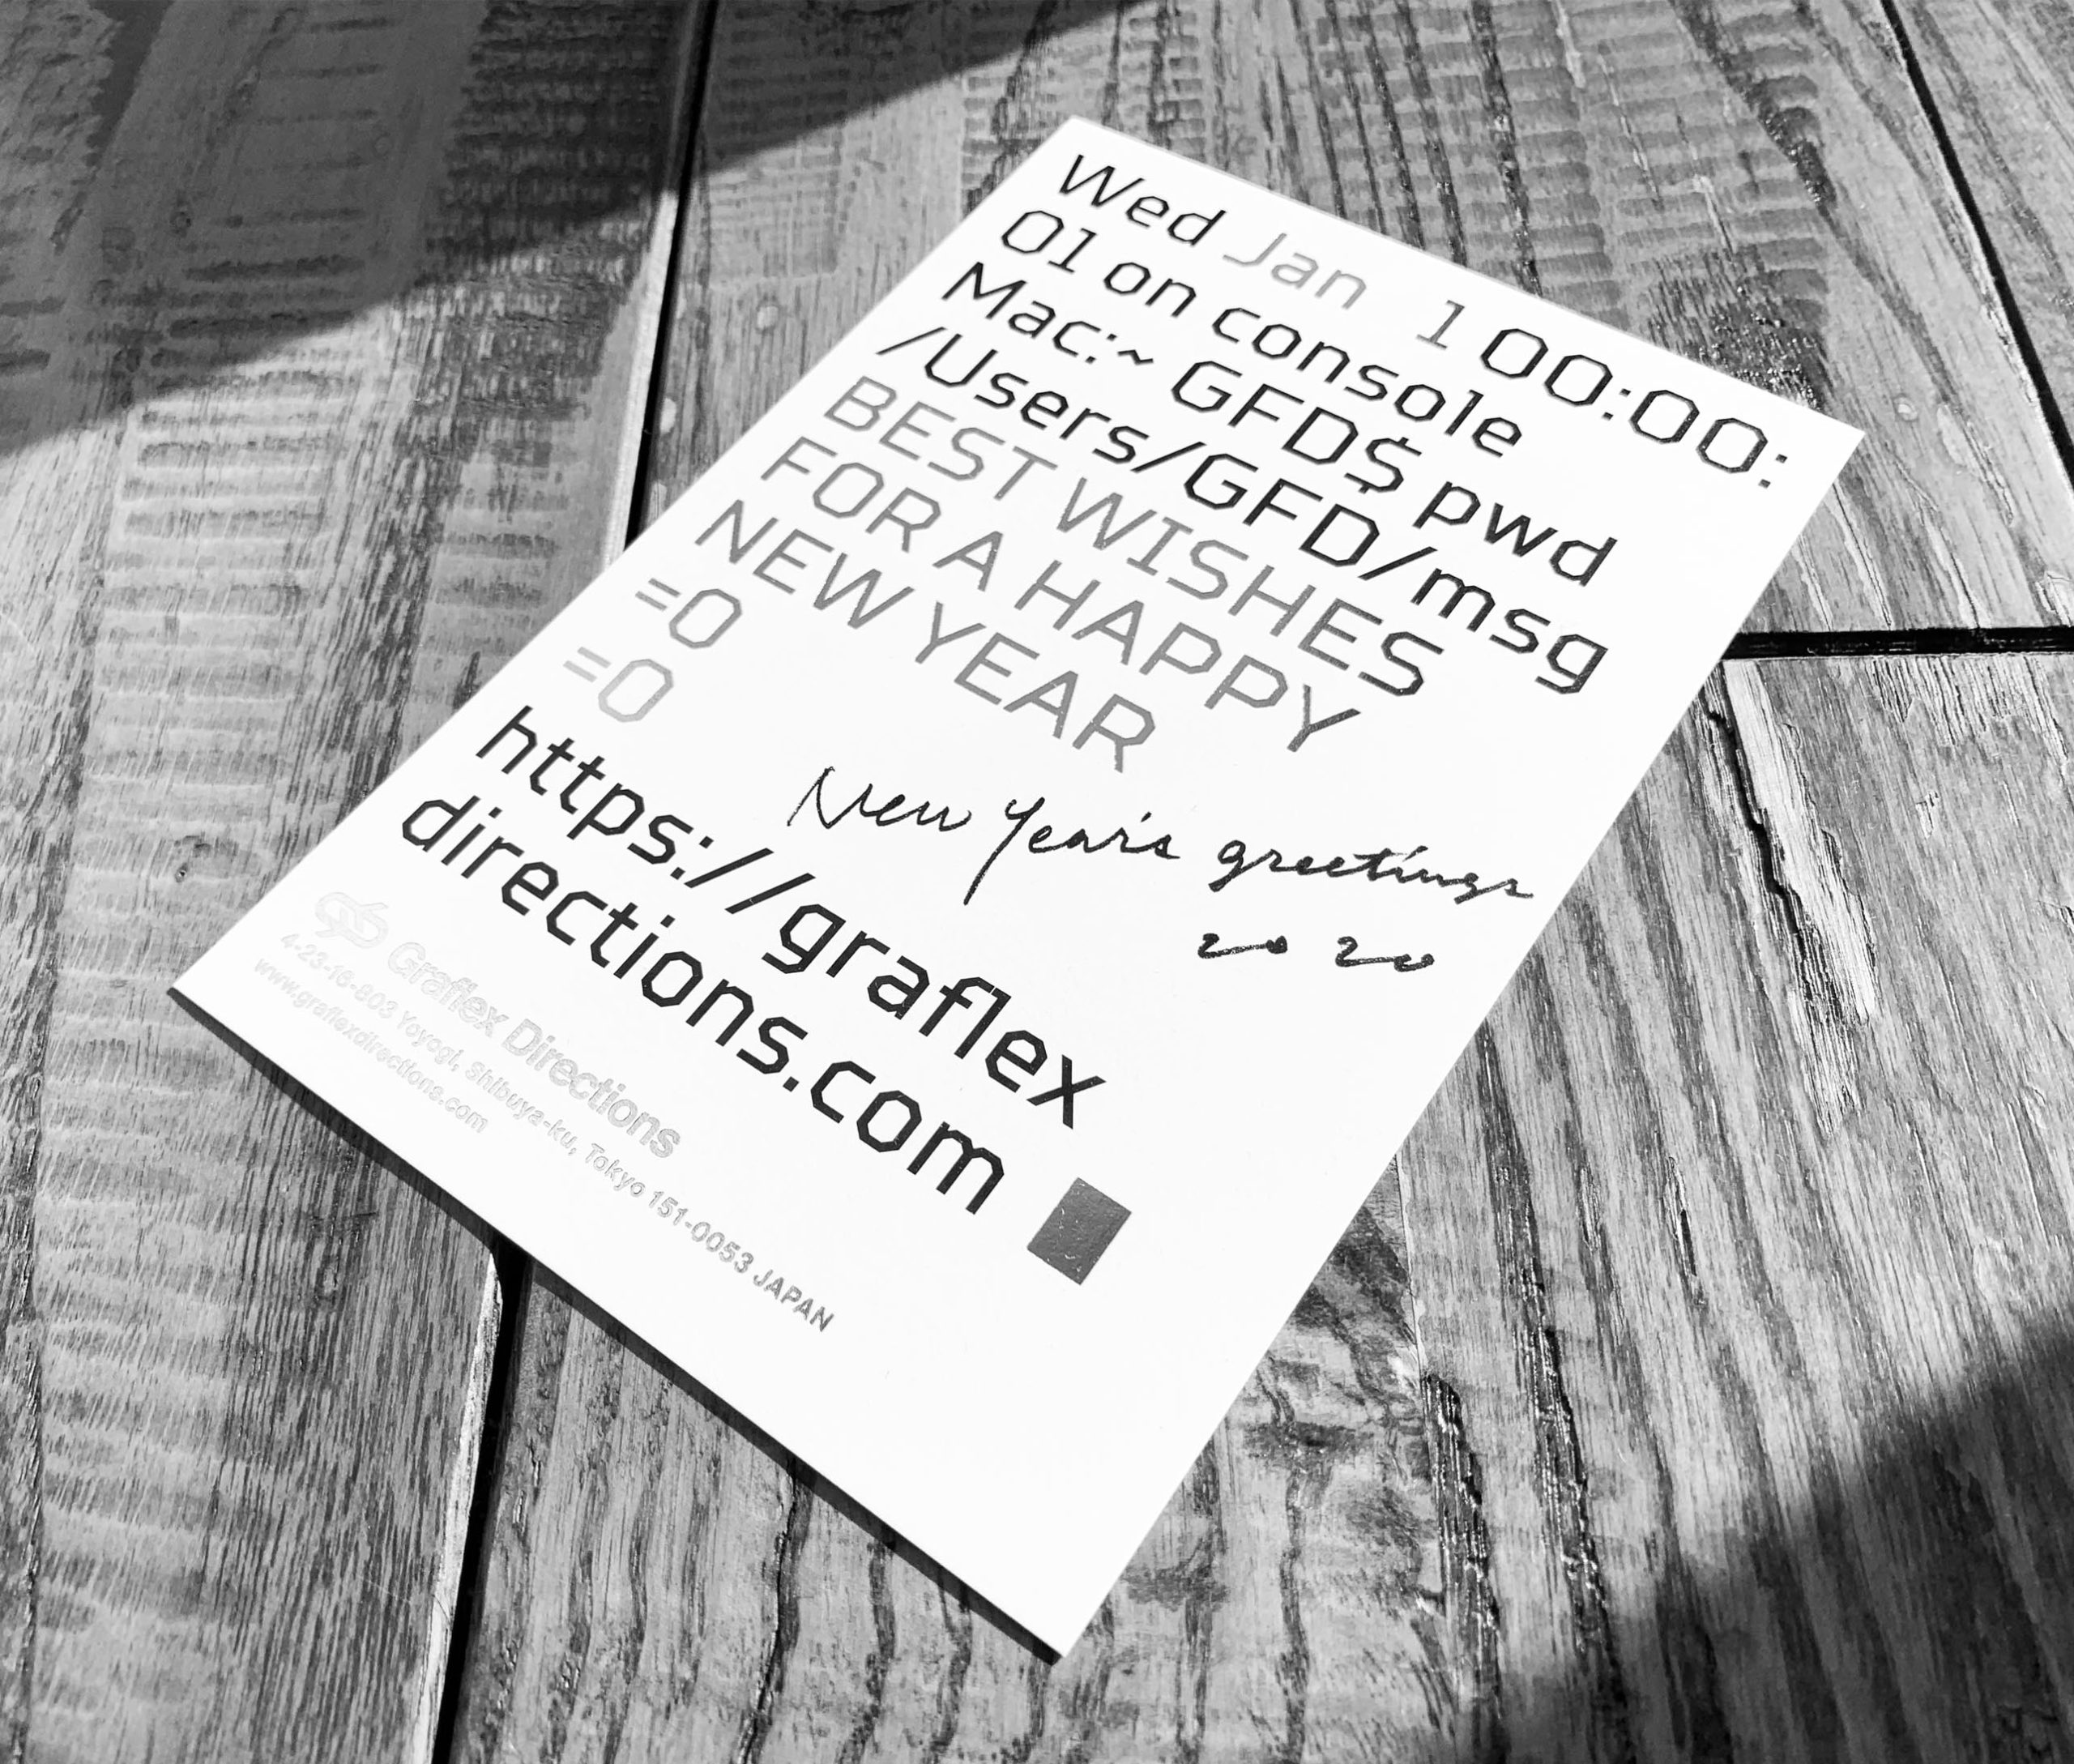 Wed Jan  1 00:00:
01 on console
Mac:~ GFD$ pwd
/Users/GFD/msg
BEST WISHES
FOR A HAPPY
NEW YEAR
=0
=0
New Year's greetings
2020
https://graflex
directions.com
Graflex Directions
4-23-16-803 Yoyogi, Shibuya-ku, Tokyo 151-0053 JAPAN
www.graflexdirections.com